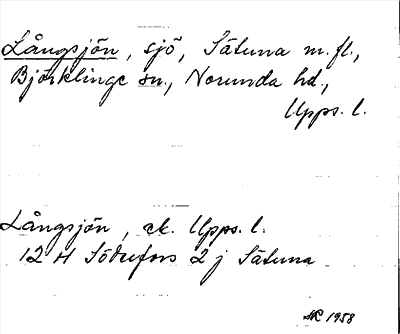 Långsjön, sjö, Sätuna m.fl.,
Björklinge sn., Norunda hd.,
Upps. l.
Långsjön, ek. Upps. l.
12 H Söderfors 2 j Sätuna
1958